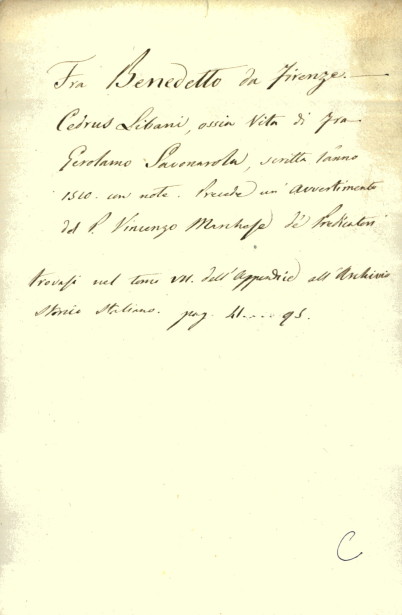 Fra Benedetto da Firenze. —
Cedrus Libani, ossia Vita di Fra
Gerolamo Savonarola, scritta l'anno
1510. con note. Precede un' avvertimento
del P. Vincenzo Marchese de' Predicatori
trovasi nel tomo VII. dell'Appendice all'Archivio
storico Italiano. pag. 41....95.
C